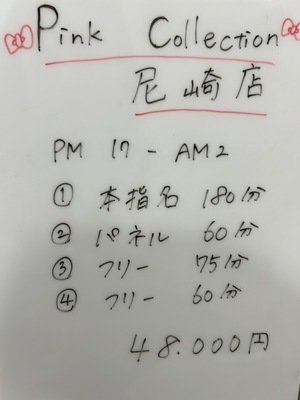 Pink Collection
尼崎店
PM 17 - AM2
① 本指名 180分
② パネル 60分
③ フリー 75分
④ フリー 60分
48.000円